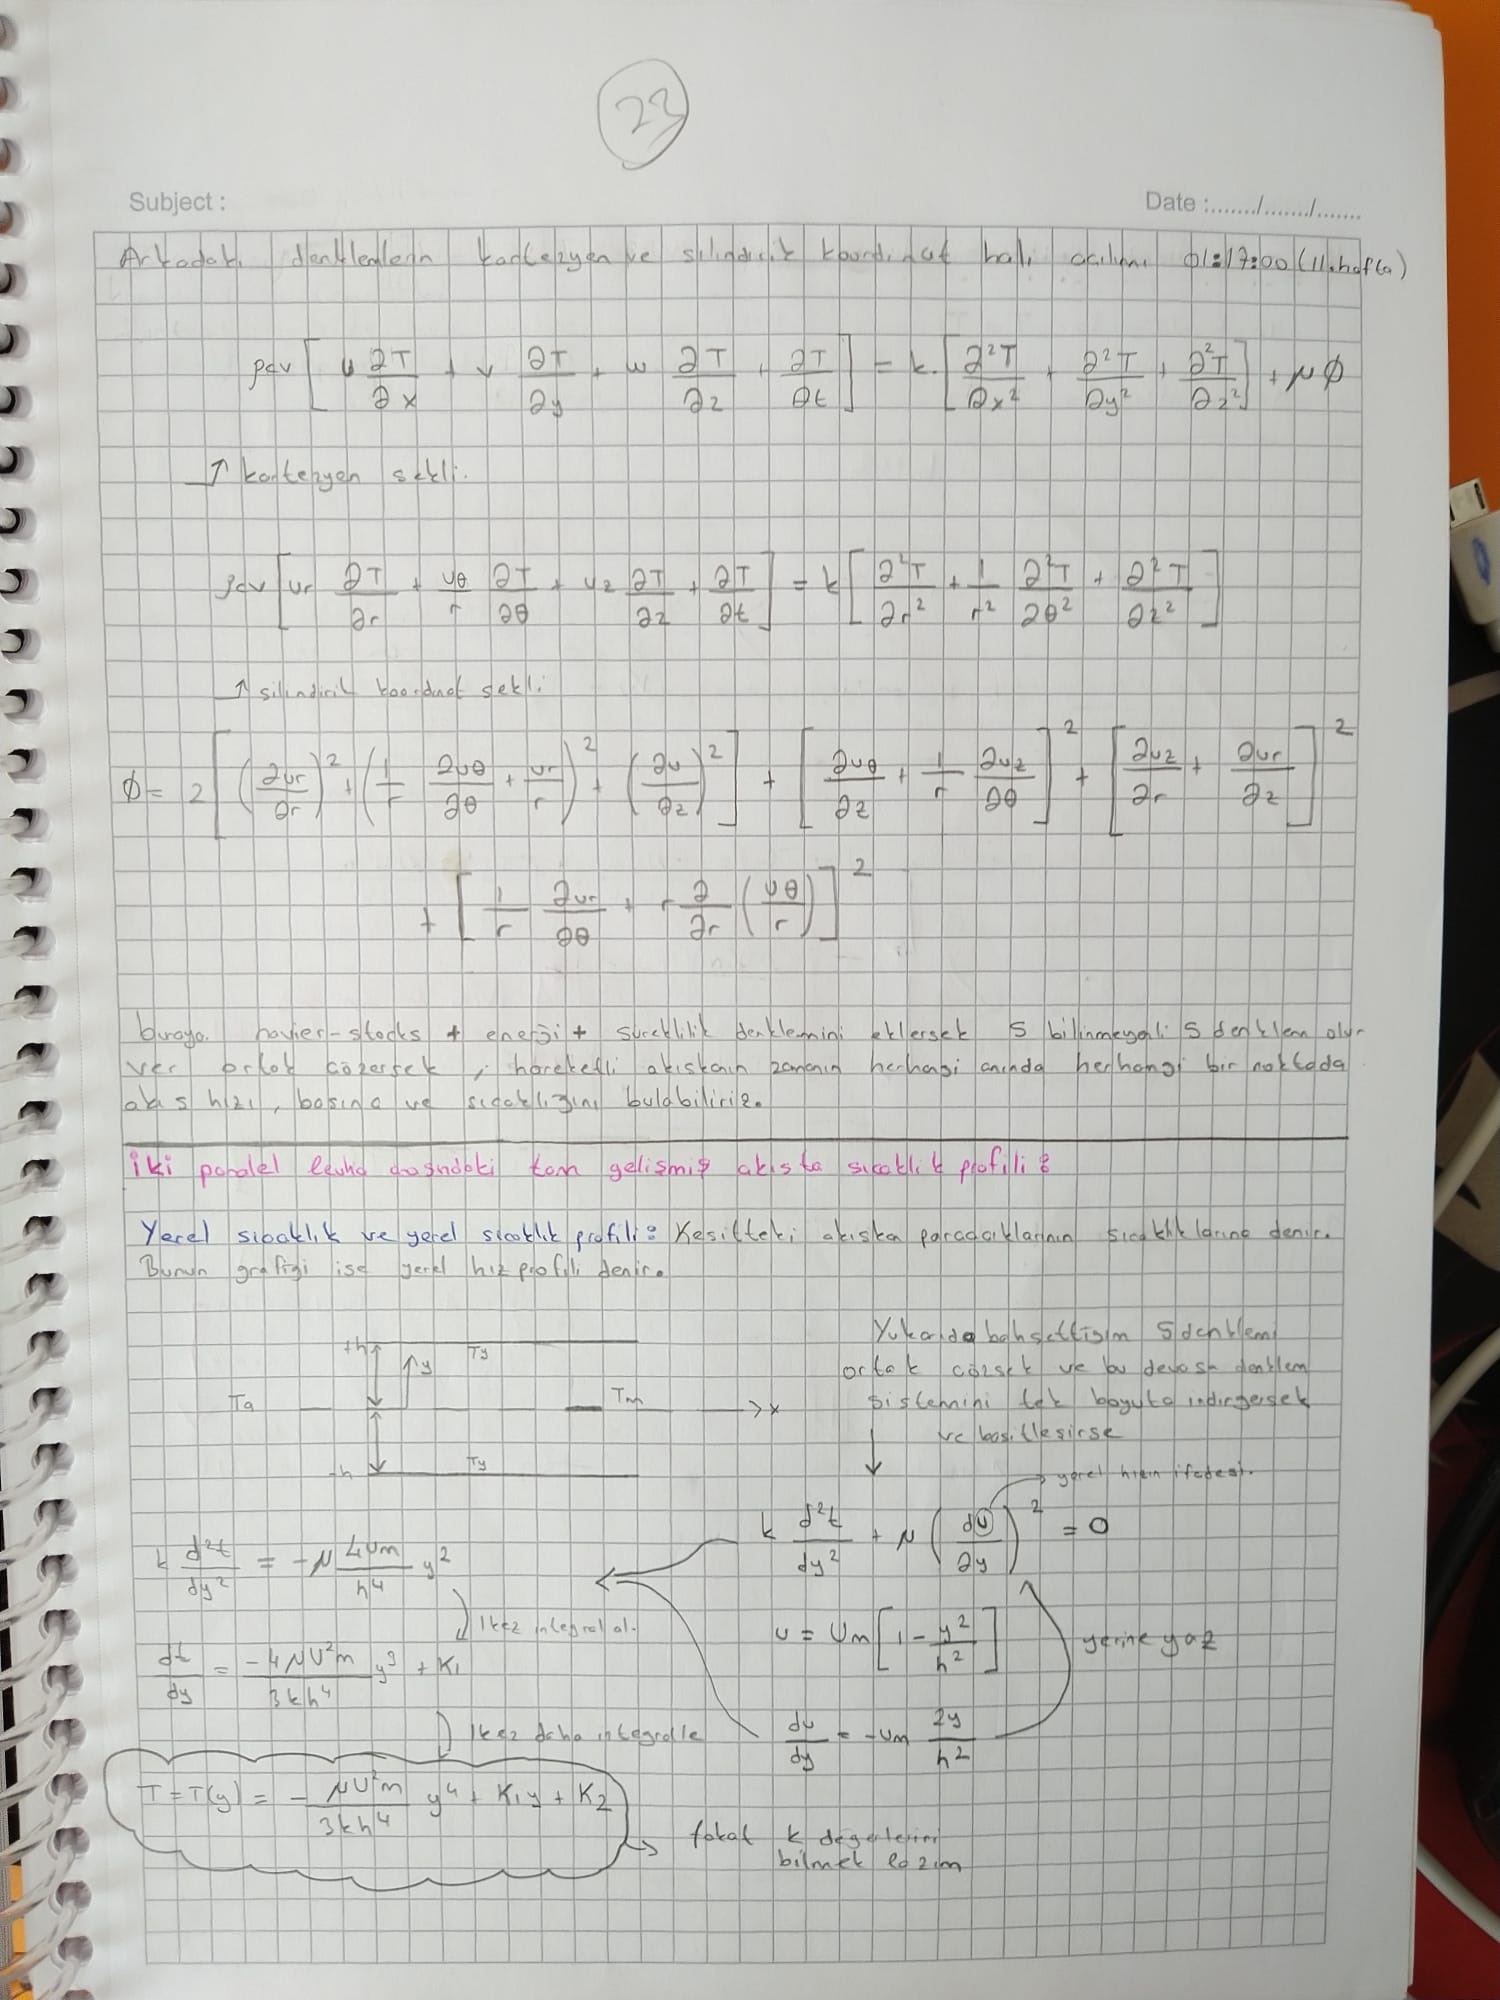 23
Subject :
Date :......./......./.......
Arkadaki denklemlerin kartezyen ve silindirik koordinat hali açılımı 01:17:00 (11.hafta)
ρcv [ u ∂T/∂x + v ∂T/∂y + w ∂T/∂z + ∂T/∂t ] = k. [ ∂²T/∂x² + ∂²T/∂y² + ∂²T/∂z² ] + μ∅
↑ kartezyen şekli.
ρcv [ ur ∂T/∂r + uθ/r ∂T/∂θ + uz ∂T/∂z + ∂T/∂t ] = k [ ∂²T/∂r² + 1/r² ∂²T/∂θ² + ∂²T/∂z² ]
↑ silindirik koordinat şekli
∅ = 2 [ (∂ur/∂r)² + (1/r ∂uθ/∂θ + ur/r)² + (∂u/∂z)² ] + [ ∂uθ/∂z + 1/r ∂uz/∂θ ]² + [ ∂uz/∂r + ∂ur/∂z ]²
+ [ 1/r ∂ur/∂θ + r ∂/∂r (uθ/r) ]²
buraya navier-stocks + enerji + süreklilik denklemini eklersek 5 bilinmeyenli 5 denklem olur
ver ortak çözersek, hareketli akışkanın zamanın herhangi anında herhangi bir noktada
akış hızı, basınç ve sıcaklığını bulabiliriz.
iki paralel levha arasındaki tam gelişmiş akışta sıcaklık profili:
Yerel sıcaklık ve yerel sıcaklık profili: Kesitteki akışkan parçacıklarının sıcaklıklarına denir.
Bunun grafiği ise yerel hız profili denir.
+h
Ty
y
Ta
Tm
x
-h
Ty
Yukarıda bahsettiğim 5 denklemi
ortak çözsek ve bu devasa denklem
sistemini tek boyuta indirgersek
ve basitleşirse
yerel hızın ifadesi.
k d²t/dy² + μ (du/∂y)² = 0
k d²t/dy² = -μ 4um/h⁴ y²
1 kez integral al.
u = Um [1 - y²/h²]
yerine yaz
dt/dy = -4μU²m/3kh⁴ y³ + K₁
1 kez daha integralle
du/dy = -um 2y/h²
T = T(y) = - μU²m/3kh⁴ y⁴ + K₁y + K₂
fakat k değerlerini
bilmek lazım